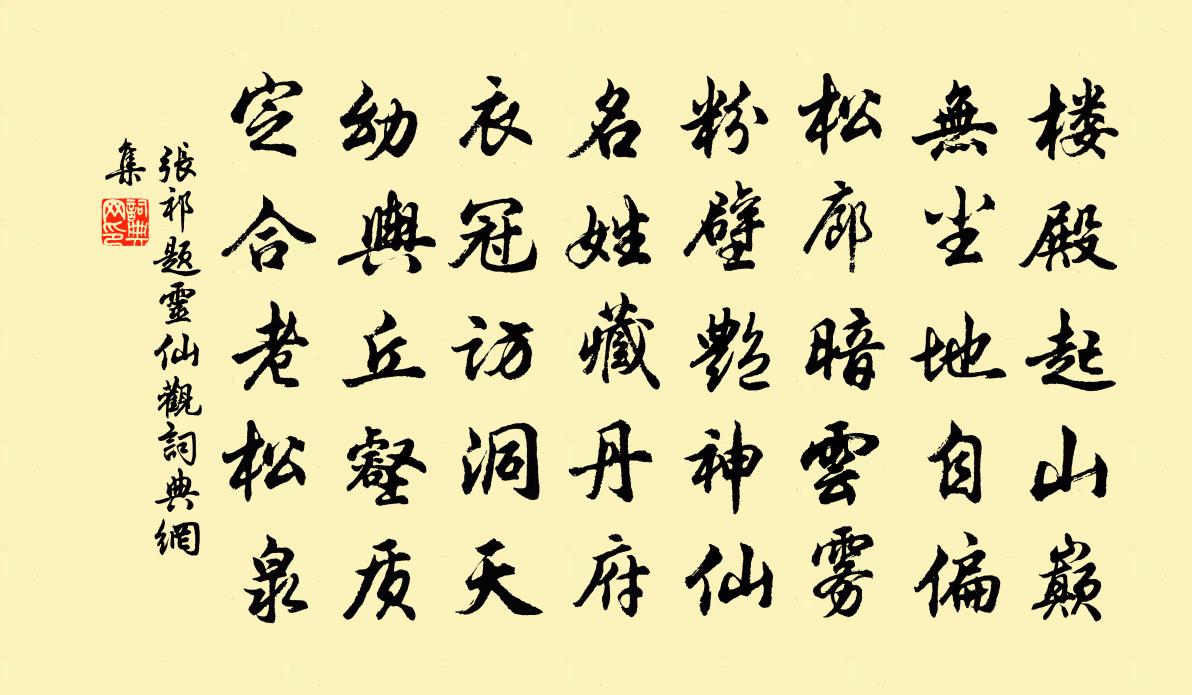 楼殿起山巅
無尘地自偏
松廊暗雲雾
粉壁艷神仙
名姓藏丹府
衣冠访洞天
幼輿丘壑质
定合老松泉
張祁题靈仙觀詞典網
集
詞典
网印